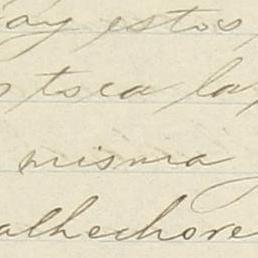 ay estos
toca la
misma
alhechore